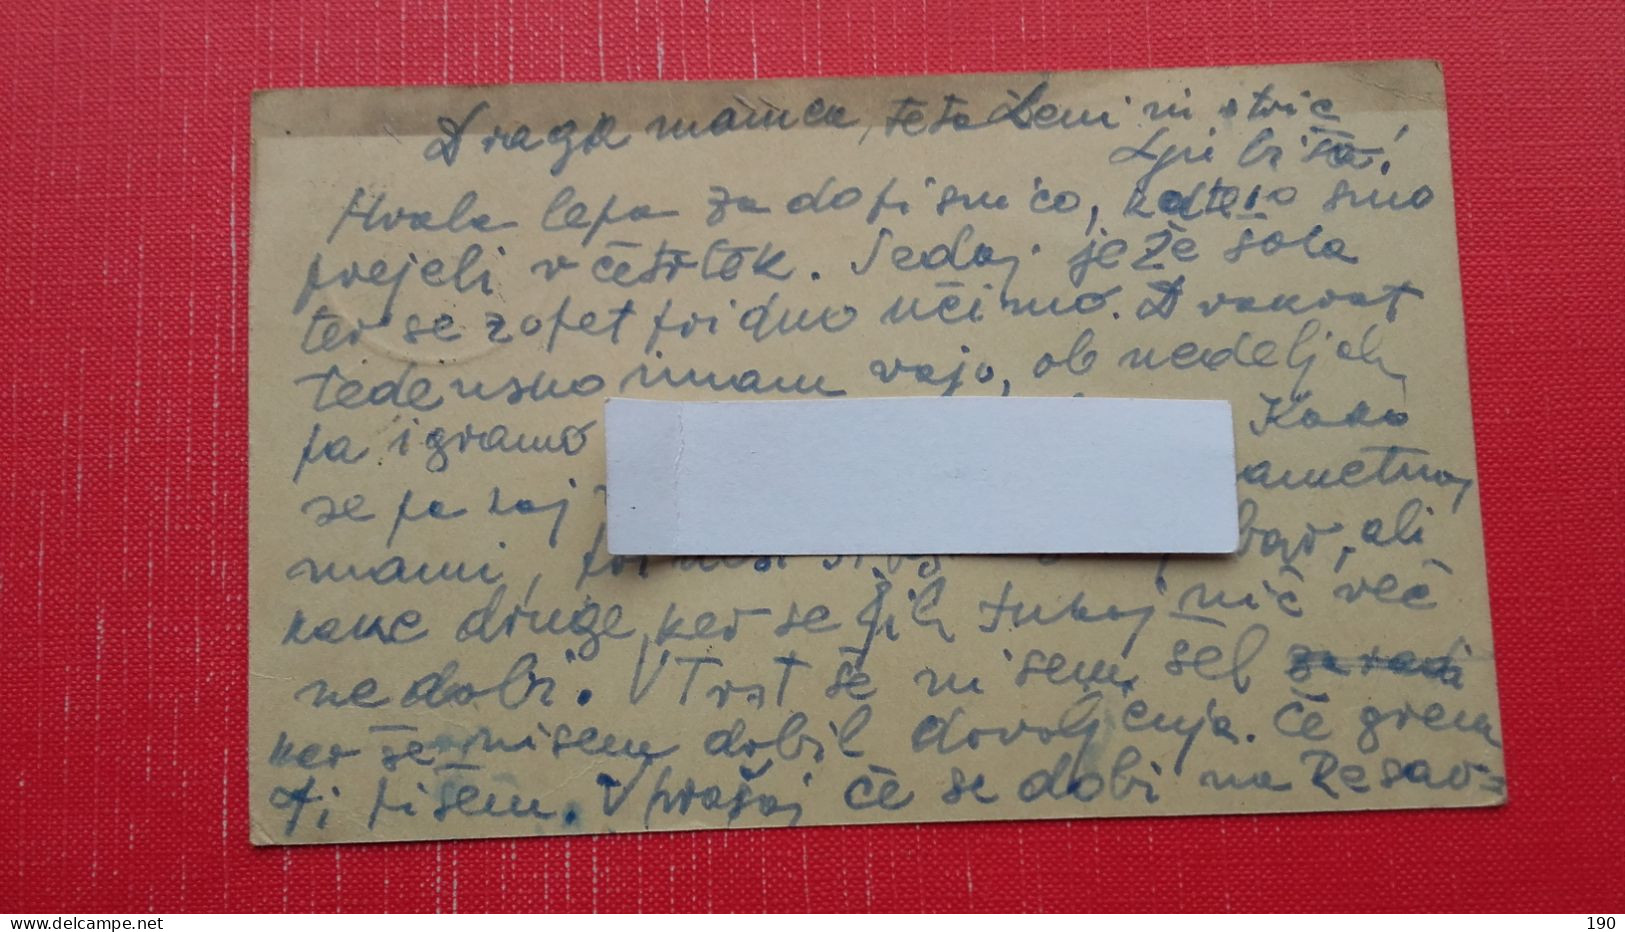 Draga mamca, teta Leni in stric
Ljubiša!
Hvala lepa za dopisnico, katero smo
prejeli v četrtek. Sedaj je že šola
ter se zopet pridno učimo. Dvakrat
tedensko imam vajo, ob nedeljah
pa igramo Kako
se pa kaj
mami, ali
kake druge, ker se jih tukaj nič več
ne dobi. V Trst še nisem šel
ker še nisem dobil dovoljenja. Če grem
ti pišem. Vprašaj če se dobi na Resav=
delcampe.net
190